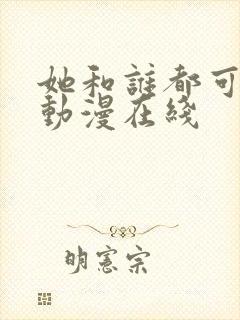 她和誰都可
動漫在綫
明憲宗